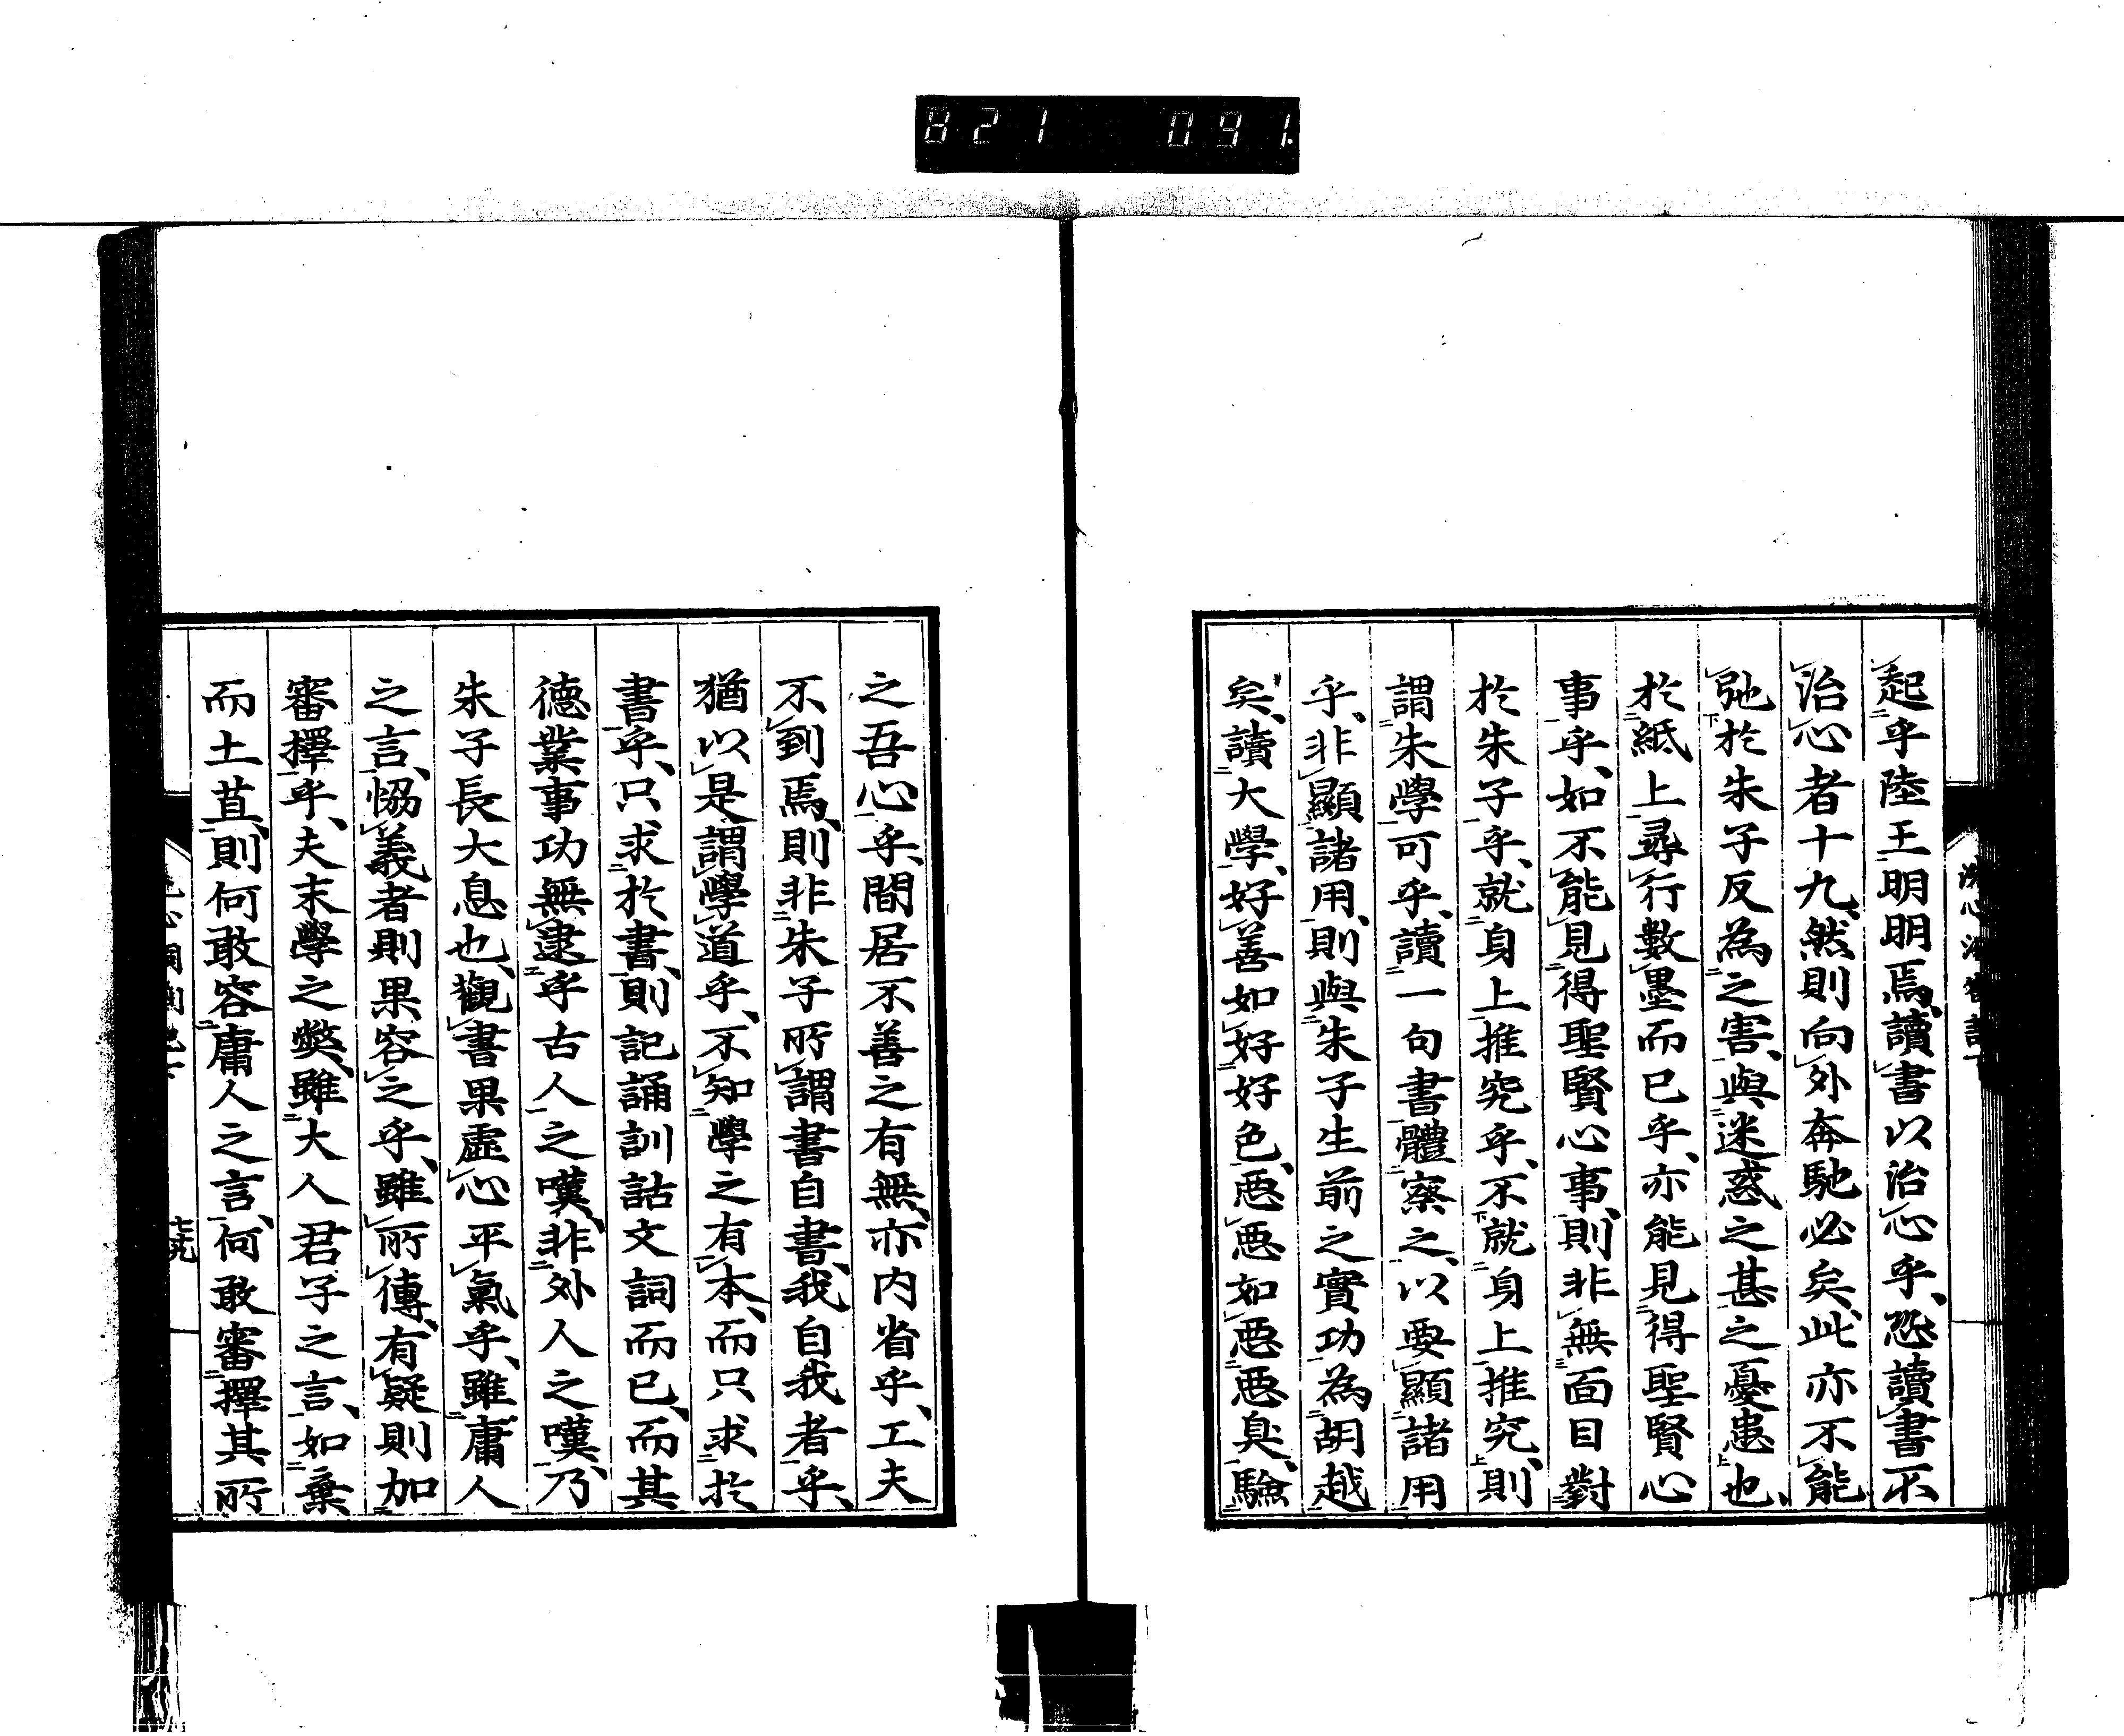 821 091.
起乎陸王明明焉、讀書以治心乎、恐讀書不
治心者十九、然則向外奔馳必矣、此亦不能
弛於朱子反為之害、與迷惑之甚之憂患也、
於紙上尋行數墨而已乎、亦能見得聖賢心
事乎、如不能見得聖賢心事、則非無面目對
於朱子乎、就身上推究乎、不就身上推究、則
謂朱學可乎、讀一句書體察之、以要顯諸用
乎、非顯諸用、則與朱子生前之實功為胡越
矣、讀大學、好善如好好色、惡惡如惡惡臭、驗
之吾心乎、間居不善之有無、亦内省乎、工夫
不到焉、則非朱子所謂書自書、我自我者乎、
猶以是謂學道乎、不知學之有本、而只求於
書乎、只求於書、則記誦訓詁文詞而已、而其
德業事功無逮乎古人之嘆、非外人之嘆、乃
朱子長大息也、觀書果虛心平氣乎、雖庸人
之言、恊義者則果容之乎、雖所傳、有疑則加
審擇乎、夫末學之弊、雖大人君子之言、如棄
而土苴、則何敢容庸人之言、何敢審擇其所
七十九